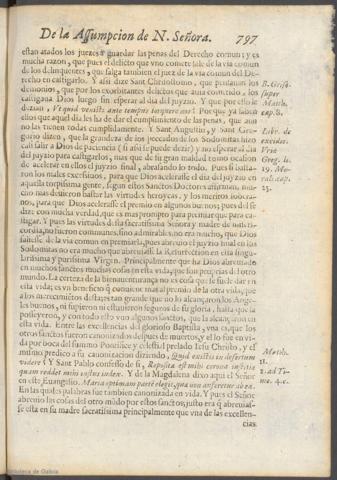 De la Assumpcion de N. Señora. 797
estan atados los juezes a guardar las penas del Derecho comun; y es
mucha razon, que pues el delicto que vno comete sale de la via comun
de los delinquentes, que salga tambien el juez de la via comun del De
recho en castigarlo. Y assi dize Sant Chrisostomo, que pensauan los
demonios, que por los exorbitantes delictos que auian cometido, los
castigaua Dios luego sin esperar al dia del juyzio. Y que por esso le
dezian, Venisti ante tempus torquere nos? Por que ya sabian
ellos que aquel dia les ha de dar el cumplimiento de las penas, que aun
no las tienen todas cumplidamente. Y Sant Augustin, y Sant Gre-
gorio dizen, que la grandeza de los peccados de los Sodomitas hizo
casi salir a Dios de paciencia (si assi se puede dezir) y no esperar al dia
del juyzio para castigarlos, mas que de su gran maldad tomo ocasion
de acelerar en ellos el juyzio final, abrasandolo todo. Pues si basta-
ron los males excessiuos, para que Dios acelerasse el dia del juyzio en
aquella torpissima gente, segun estos Sanctos Doctores affirman, mu-
cho mas deuieron bastar las virtudes heroycas, y los meritos sobera-
nos, para que Dios acelerasse el premio en algunos buenos; pues del se
dize con mucha verdad, que es mas prompto para premiar que para ca-
stigar. Y pues las virtudes desta sacratissima Señora y madre de miseri-
cordia, no fueron communes, sino admirables, no era mucho, que Dios
saliesse de la via comun en premiarla, pues abreuio el juyzio final en los
Sodomitas no era mucho que abreuiasse la Resurrection en esta singu-
larissima y purissima Virgen. Principalmente que ha Dios abreuiado
en muchos sanctos muchas cosas en esta vida, que son proprias del otro
mundo. La certeza de la bienauenturança no es cosa que se suele dar en
esta vida; es vn beneficio que comiença mas al premio de la otra vida, que
a los merecimientos desta; es tan grande que no lo alcançaron los Ange-
les buenos, ni supieron ni estuuieron seguros de su gloria, hasta que la
posseyeron, y con todo esto vuo algunos sanctos, que la alcançaron en
esta vida. Entre las excellencias del glorioso Baptista, vna es, que los
otros sanctos fueron canonizados despues de muertos, y el lo fue en vi
da por boca del summo Pontifice y celestial prelado Iesu Christo, y el
mismo predico a su canonizacion diziendo, Quid existis in desertum
videre? Y Sant Pablo confiesso de si, Reposita est mihi corona iustitiæ
quam reddet mihi iustus iudex. Y de la Magdalena dixo aqui el Señor
en este Euangelio. Maria optimam parte elegit, que non auferetur ab ea.
En las quales palabras fue tambien canonizada en vida. Y pues el Señor
abreuio las cosas del otro mũdo por estos sanctos, justo era q̃ abreuias-
se esta en su madre Sacratissima principalmente que vna de las excellen-
cias
B. Crisos.
super
Matth.
cap. 8.
Libr. de
Greg. li.
19. Mo-
ral. cap.
23.
Matth.
11.
2. ad Ti-
mo. 4. c.
Biblioteca de Galicia